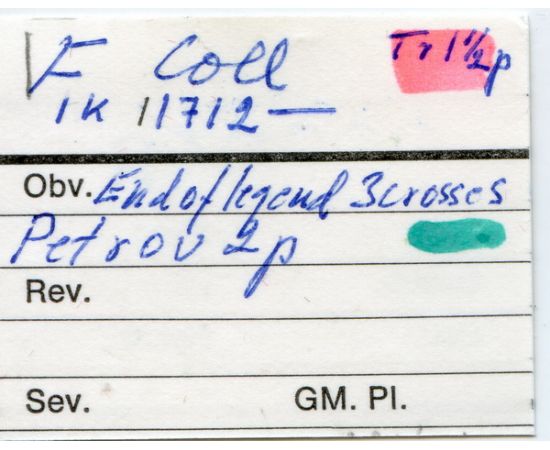 F Coll Tr 1 1/2 p
1K 1712 —
Obv. End of legend 3 crosses
Petrov 2p
Rev.
Sev. GM. Pl.